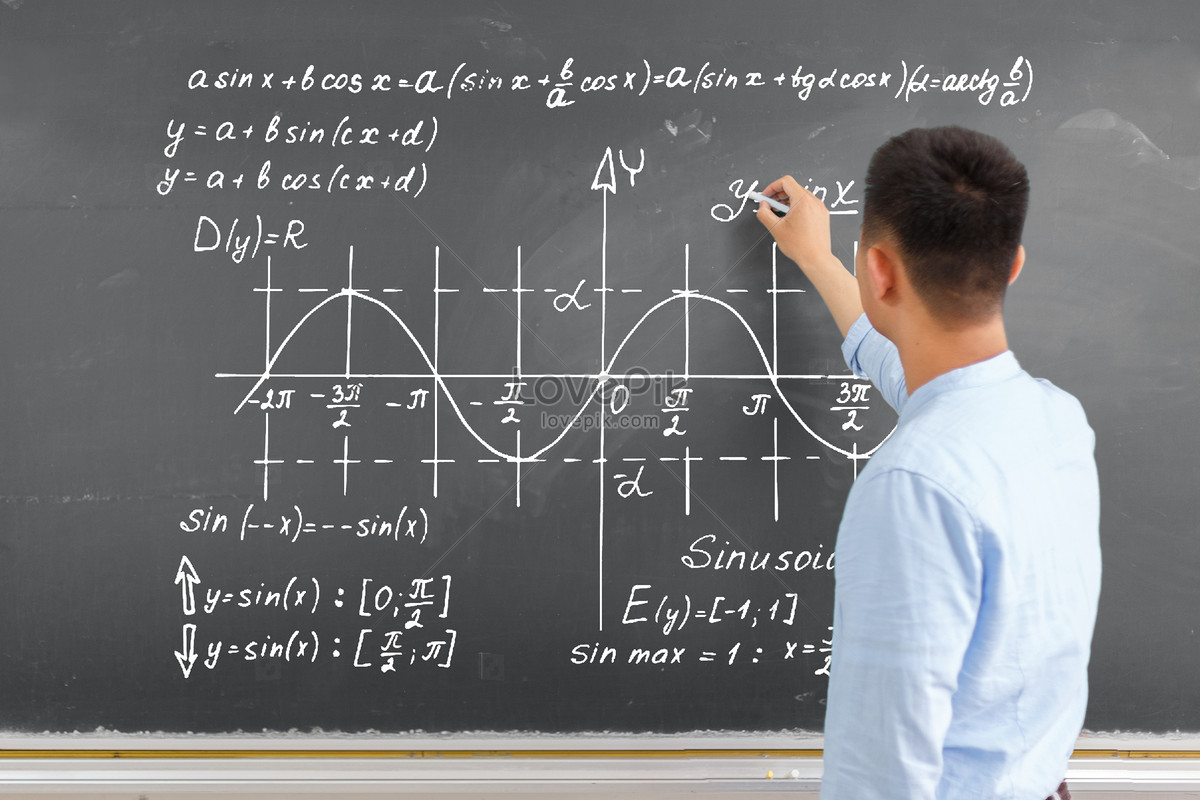 a sin x + b cos x = a (sin x + b/a cos x) = a (sin x + tg α cos x) (α = arctg b/a)
y = a + b sin (cx + d)
y = a + b cos (cx + d)
Y
y = sin x
D(y) = R
α
-2π -3π/2 -π -π/2 0 π/2 π 3π/2
LovePik
lovepik.com
-α
sin (--x) = --sin(x)
Sinusoid
y = sin(x) : [0; π/2]
E(y) = [-1; 1]
y = sin(x) : [π/2; π]
sin max = 1 : x =